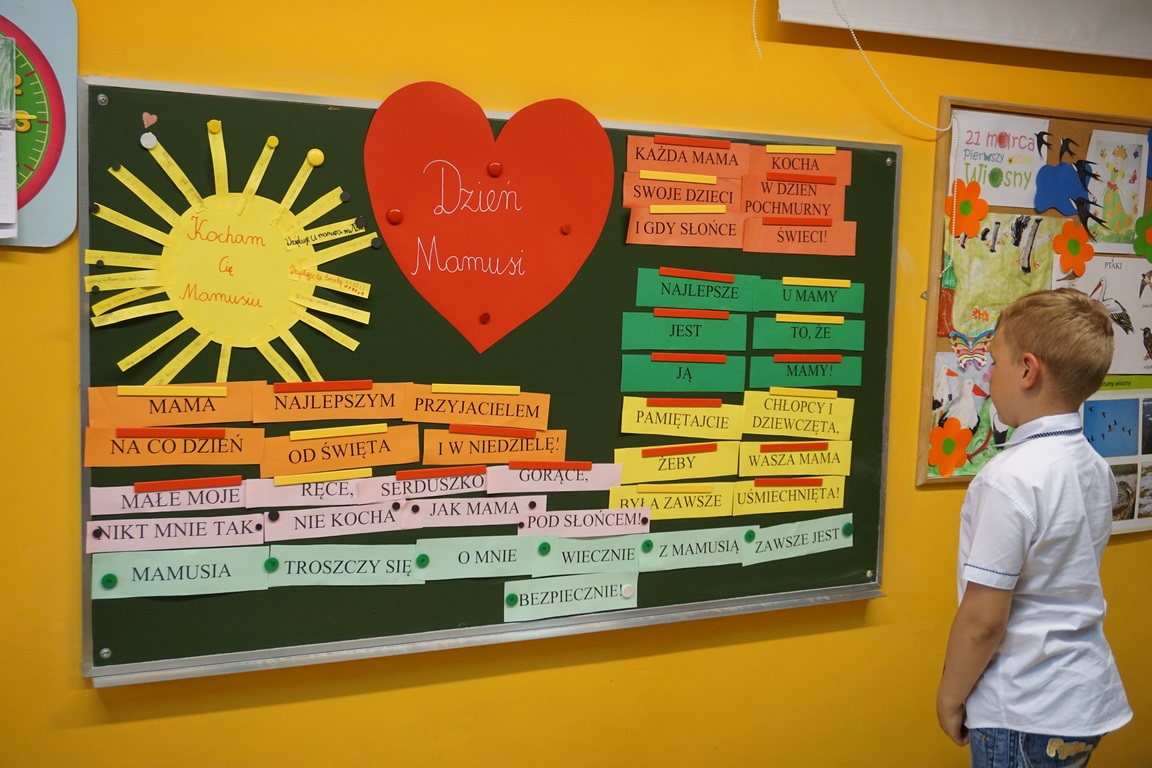 Kocham
Cię
Mamusiu
Dzień
Mamusi
KAŻDA MAMA KOCHA
SWOJE DZIECI W DZIEŃ
POCHMURNY
I GDY SŁOŃCE ŚWIECI!
NAJLEPSZE U MAMY
JEST TO, ŻE
JĄ MAMY!
PAMIĘTAJCIE CHŁOPCY I
DZIEWCZĘTA,
ŻEBY WASZA MAMA
BYŁA ZAWSZE UŚMIECHNIĘTA!
MAMA NAJLEPSZYM PRZYJACIELEM
NA CO DZIEŃ OD ŚWIĘTA I W NIEDZIELĘ!
MAŁE MOJE RĘCE, SERDUSZKO GORĄCE,
NIKT MNIE TAK NIE KOCHA JAK MAMA POD SŁOŃCEM!
MAMUSIA TROSZCZY SIĘ O MNIE WIECZNIE Z MAMUSIĄ ZAWSZE JEST
BEZPIECZNIE!
21 marca
Pierwszy
Wiosny
PTAKI